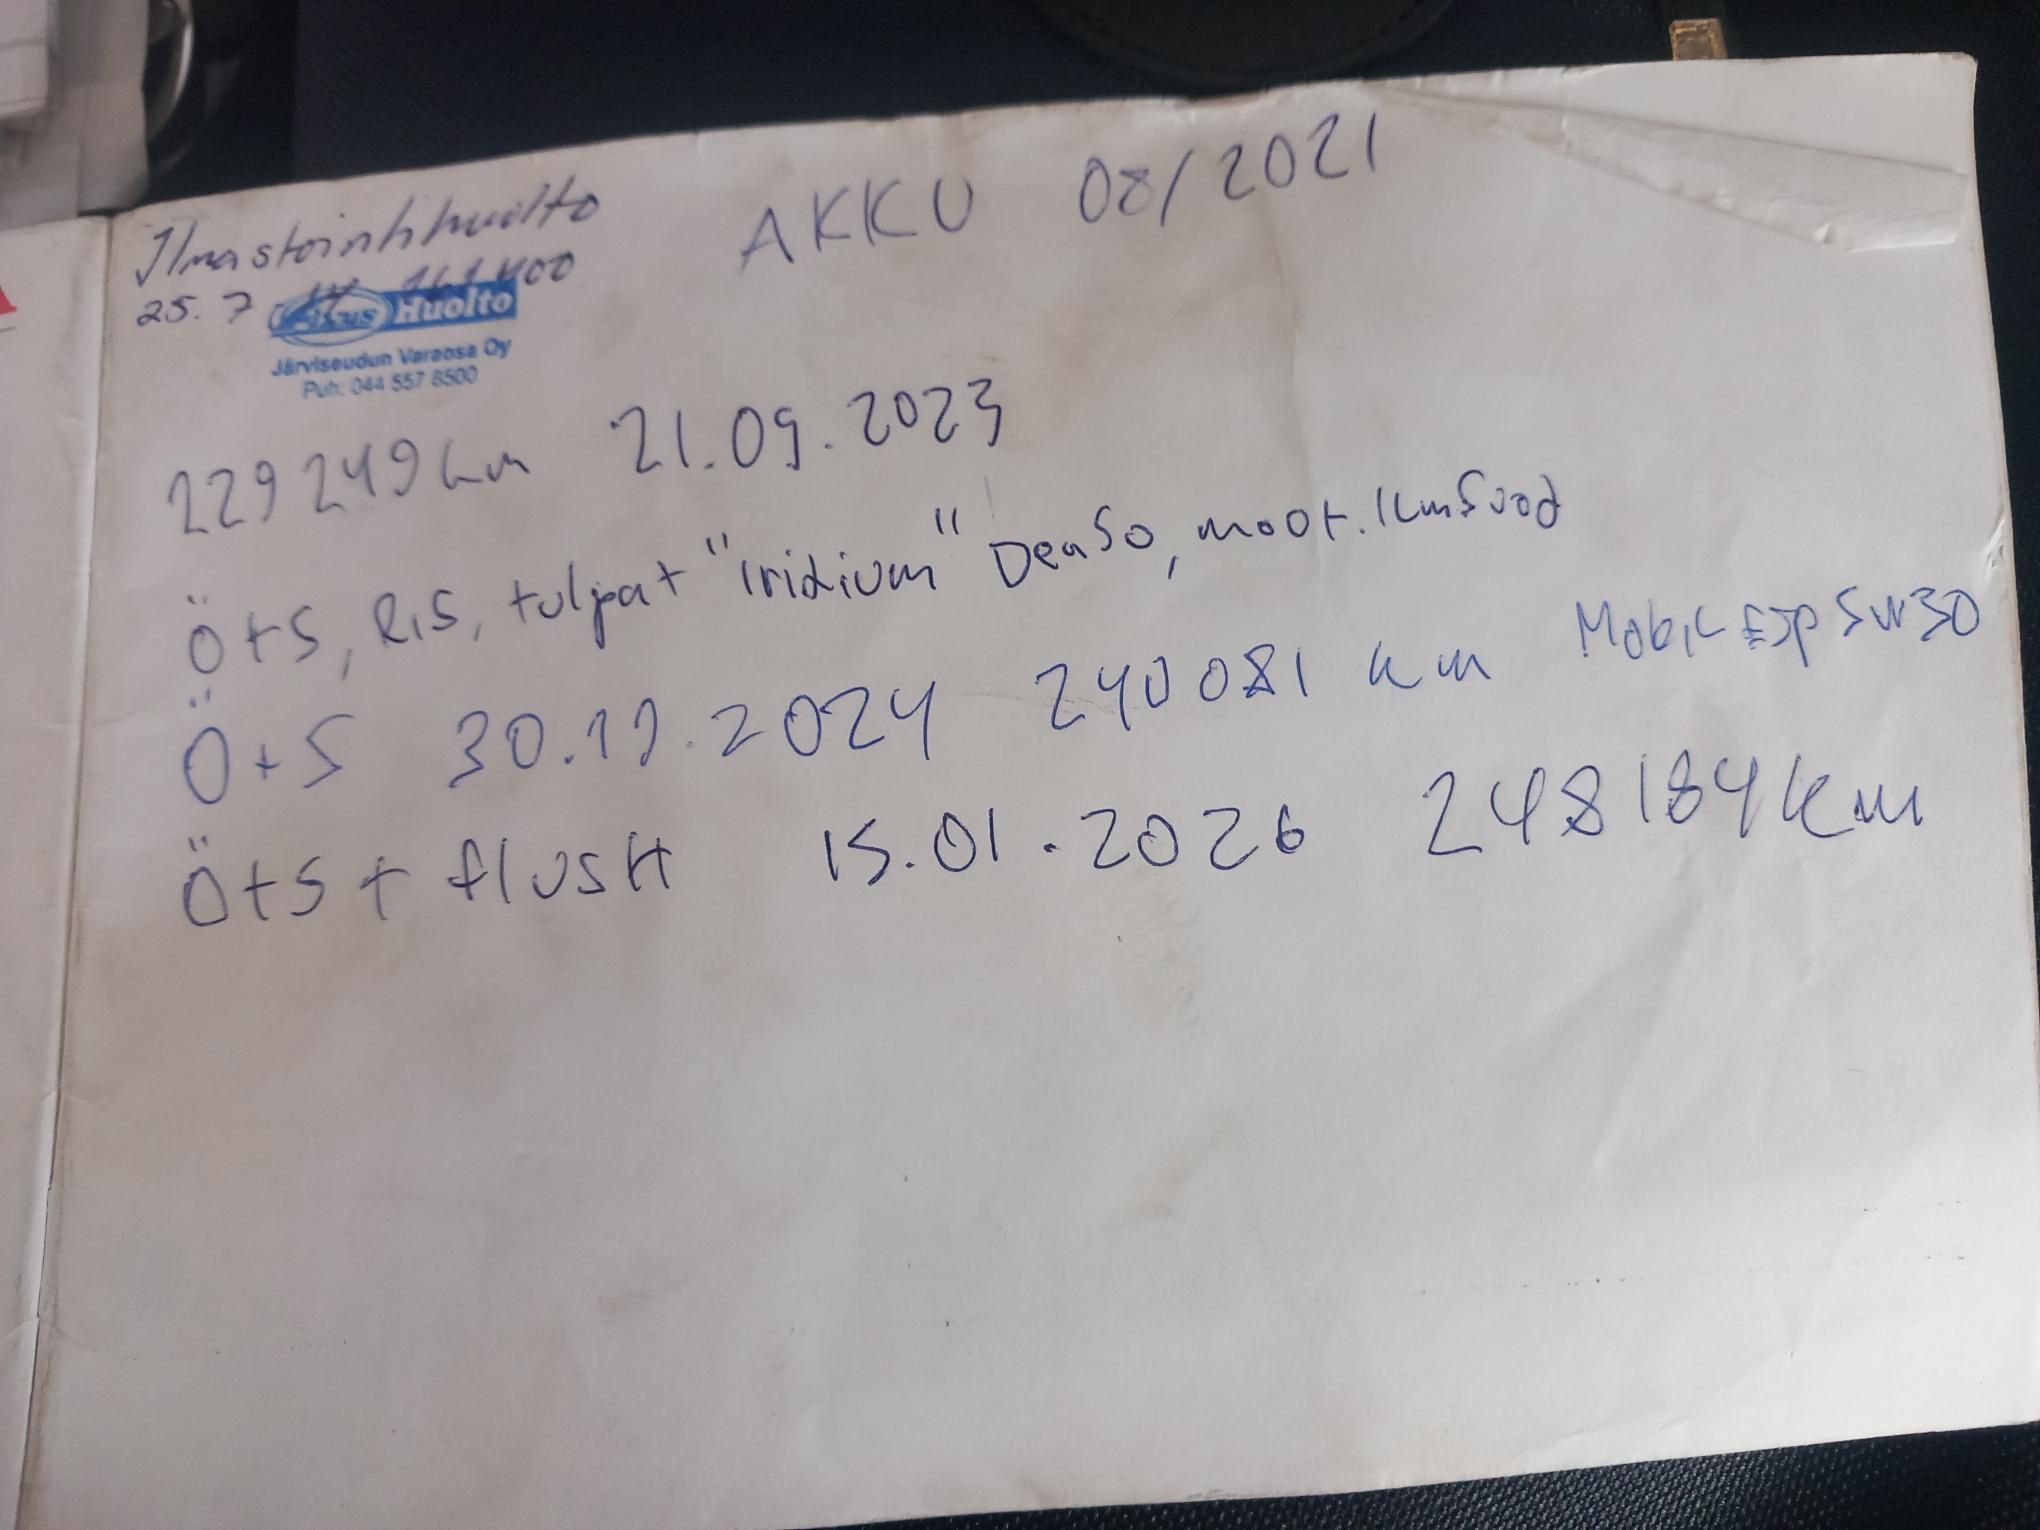 Ilmastointihuolto
AKKU 08/2021
25.7
Huolto
Järviseudun Varaosa Oy
Puh: 044 557 8500
229 249 km 21.09.2023
Ö+S, R.S, tulpat "iridium" Denso, moot. ilmsuod
Ö+S 30.12.2024 240081 km Mobil ESP 5W30
Ö+S + flusH 15.01.2026 248184 km